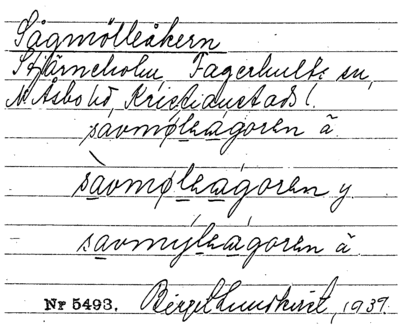 Sågmölleåkern
Stjärneholm, Fagerhults sn,
N. Åsbo hd, Kristianstads l.
såvmøleågoren ä
såvmøleågoren y
såvmýleågoren ä
Nr 5493. Birgit Lundkvist, 1939